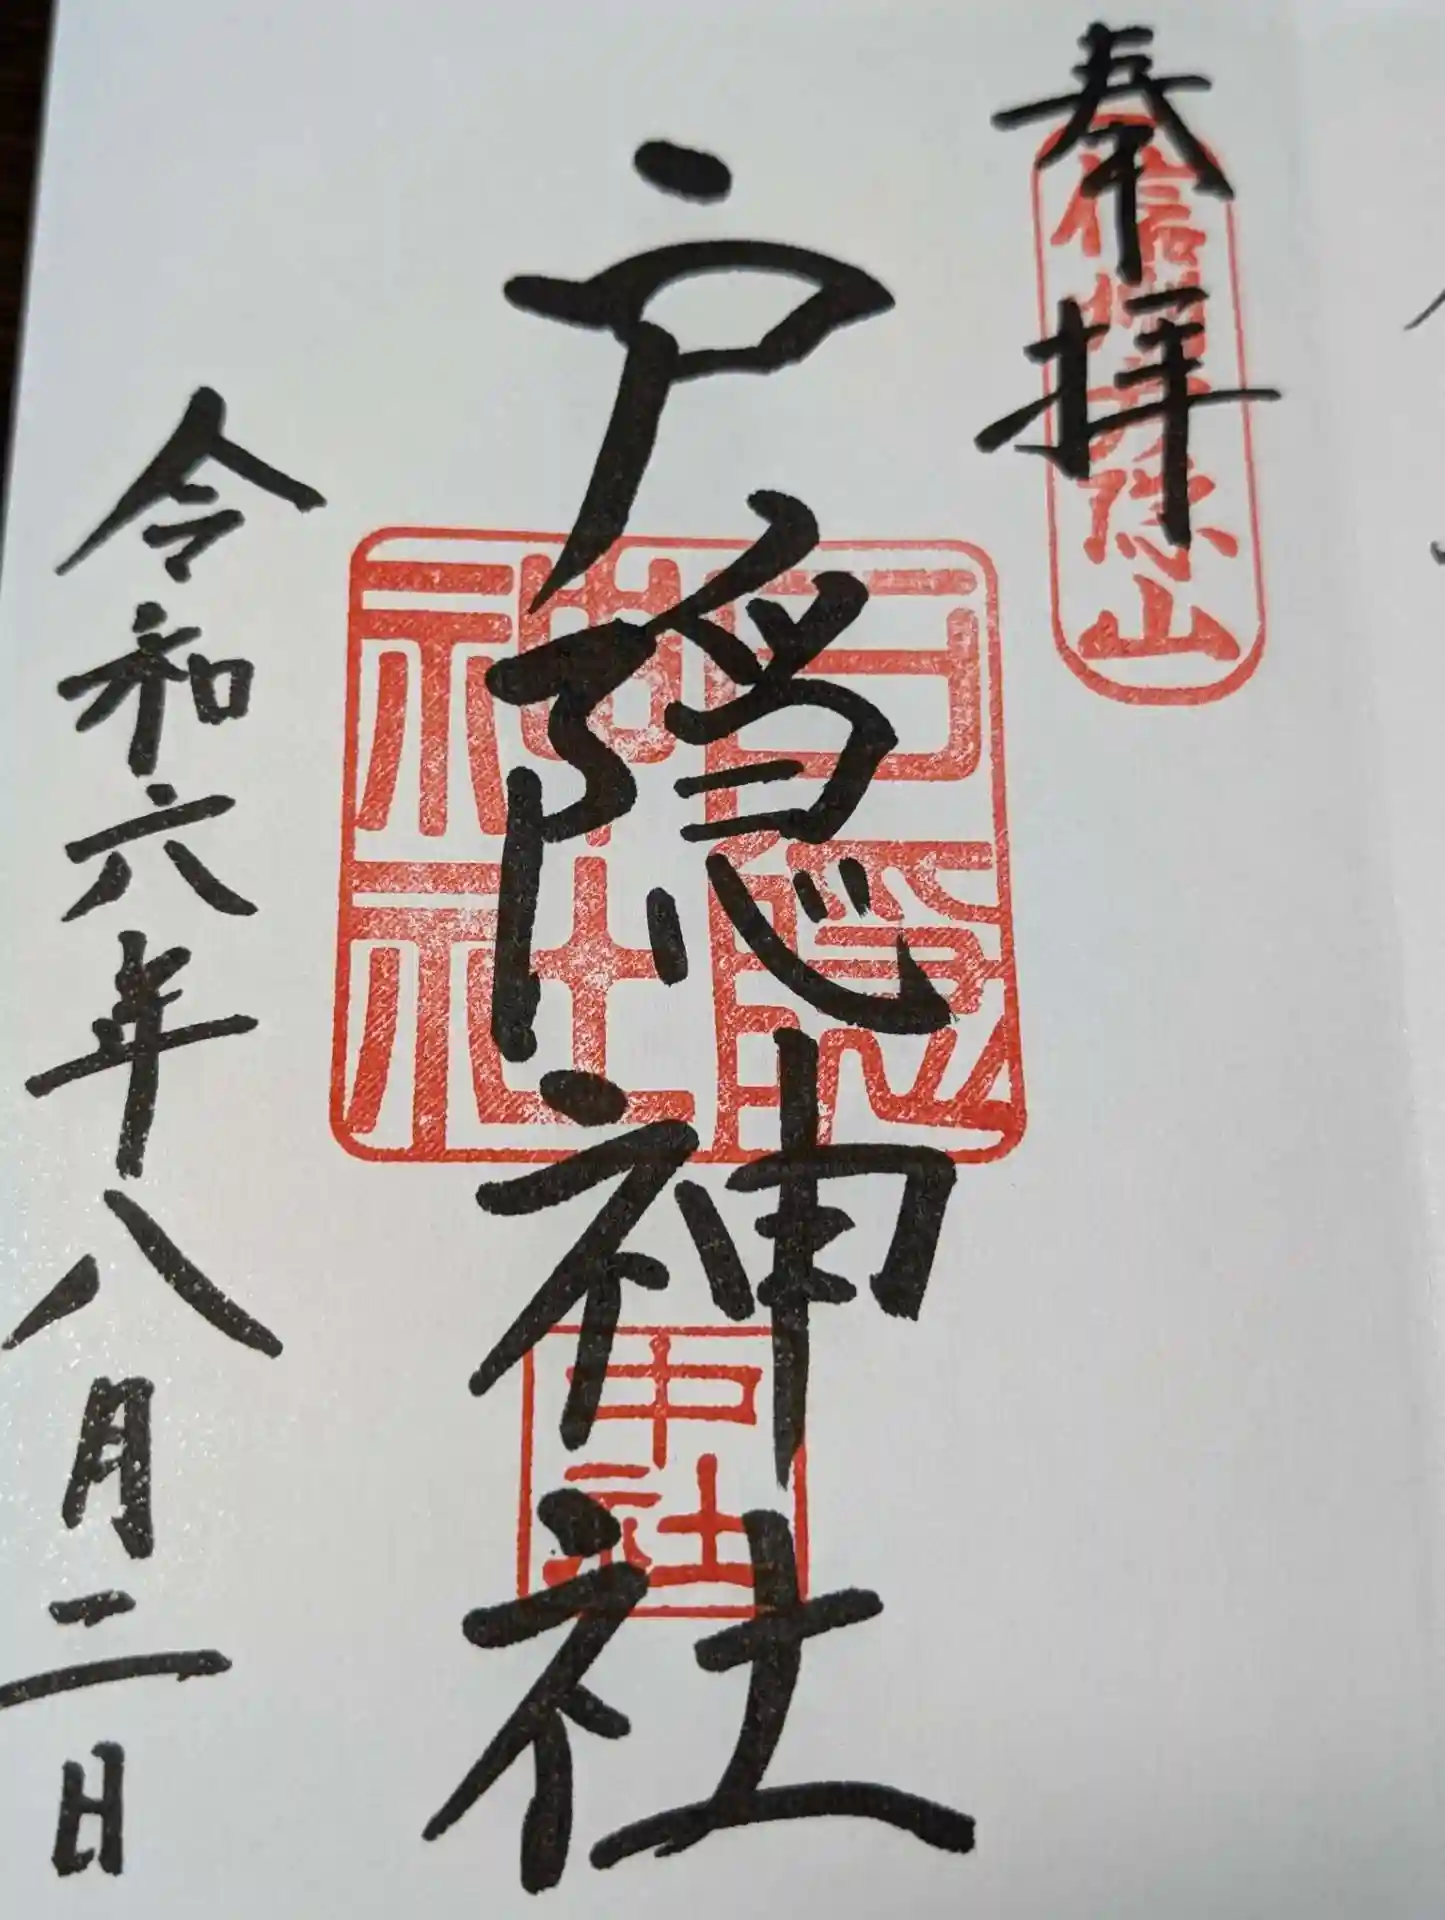 奉拝
信州戸隠山
戸隠神社
戸隠
神社
中社
令和六年八月二日